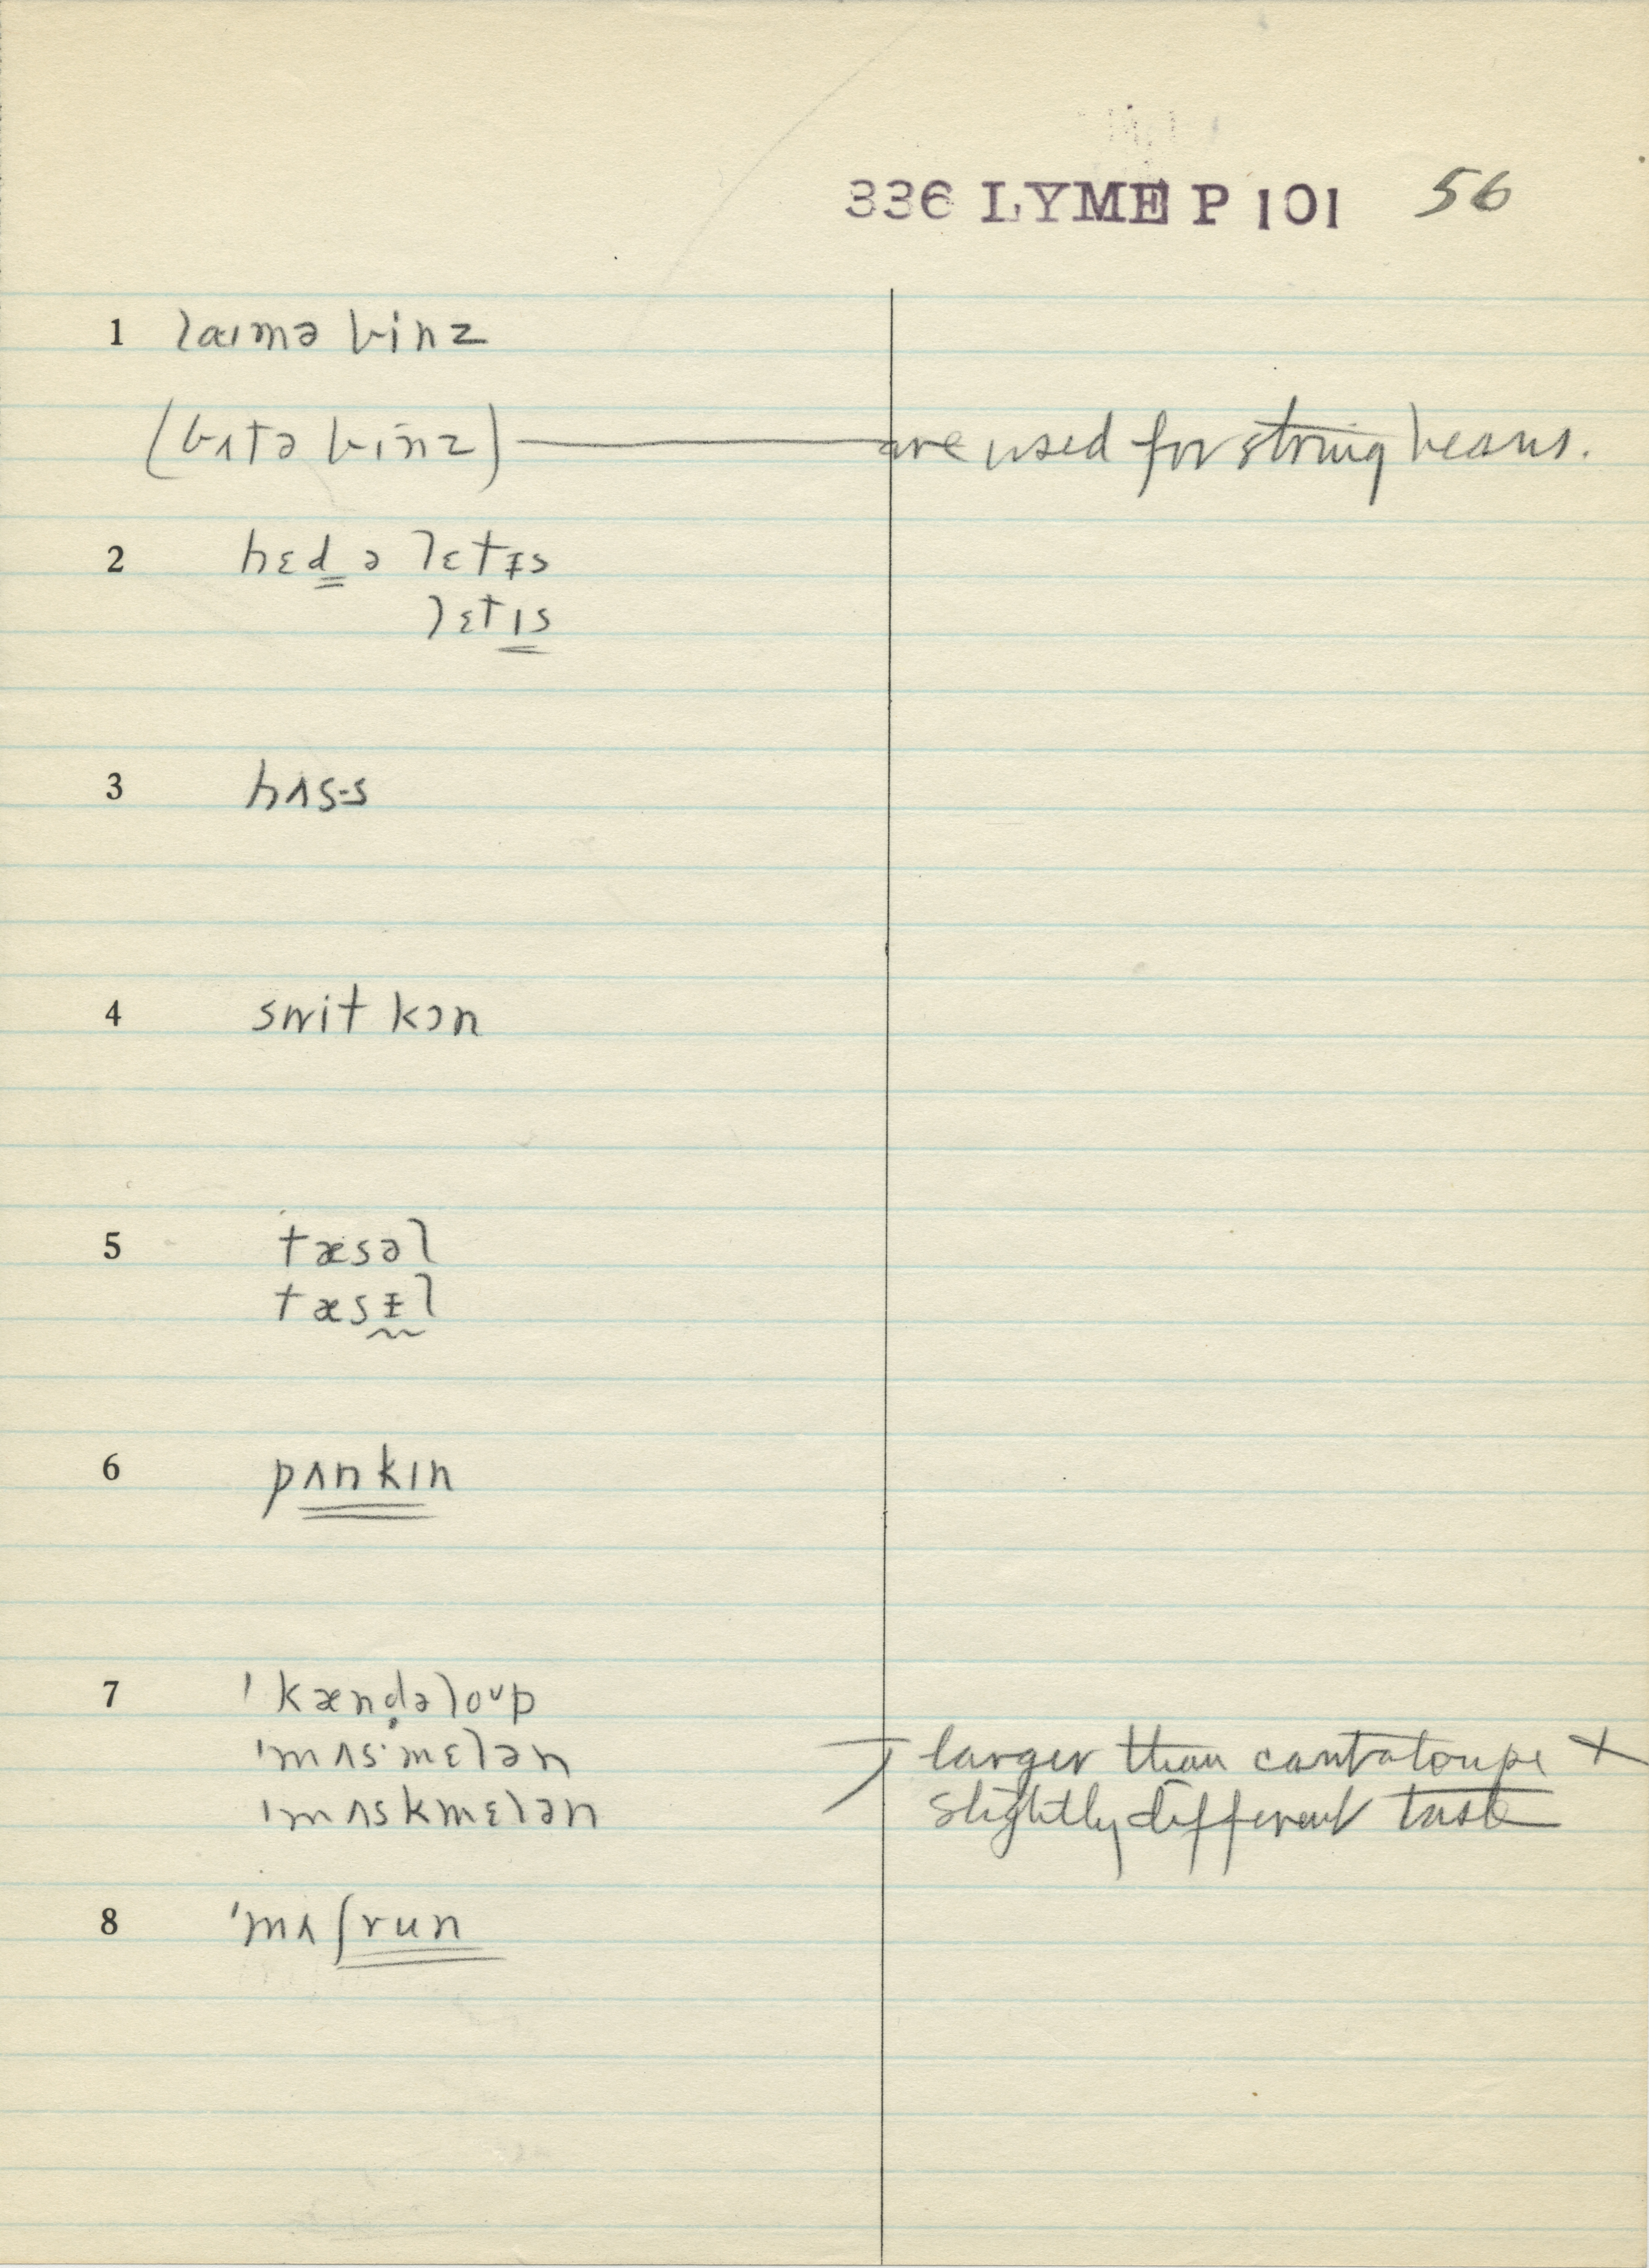 336 LYME P 101 56
1 laɪmə binz
(bʌtə binz) — are used for string beans.
2 hɛd ə lɛtɪ̵s
lɛtɪs
3 hʌs·s
4 swit kɔn
5 tæsəl
tæsɪ̵l
6 pʌnkɪn
7 ˈkænd̥əloᴜp
ˈmʌs·mɛlən larger than cantaloupe +
ˈmʌskmɛlən slightly different taste
8 ˈmʌʃrun